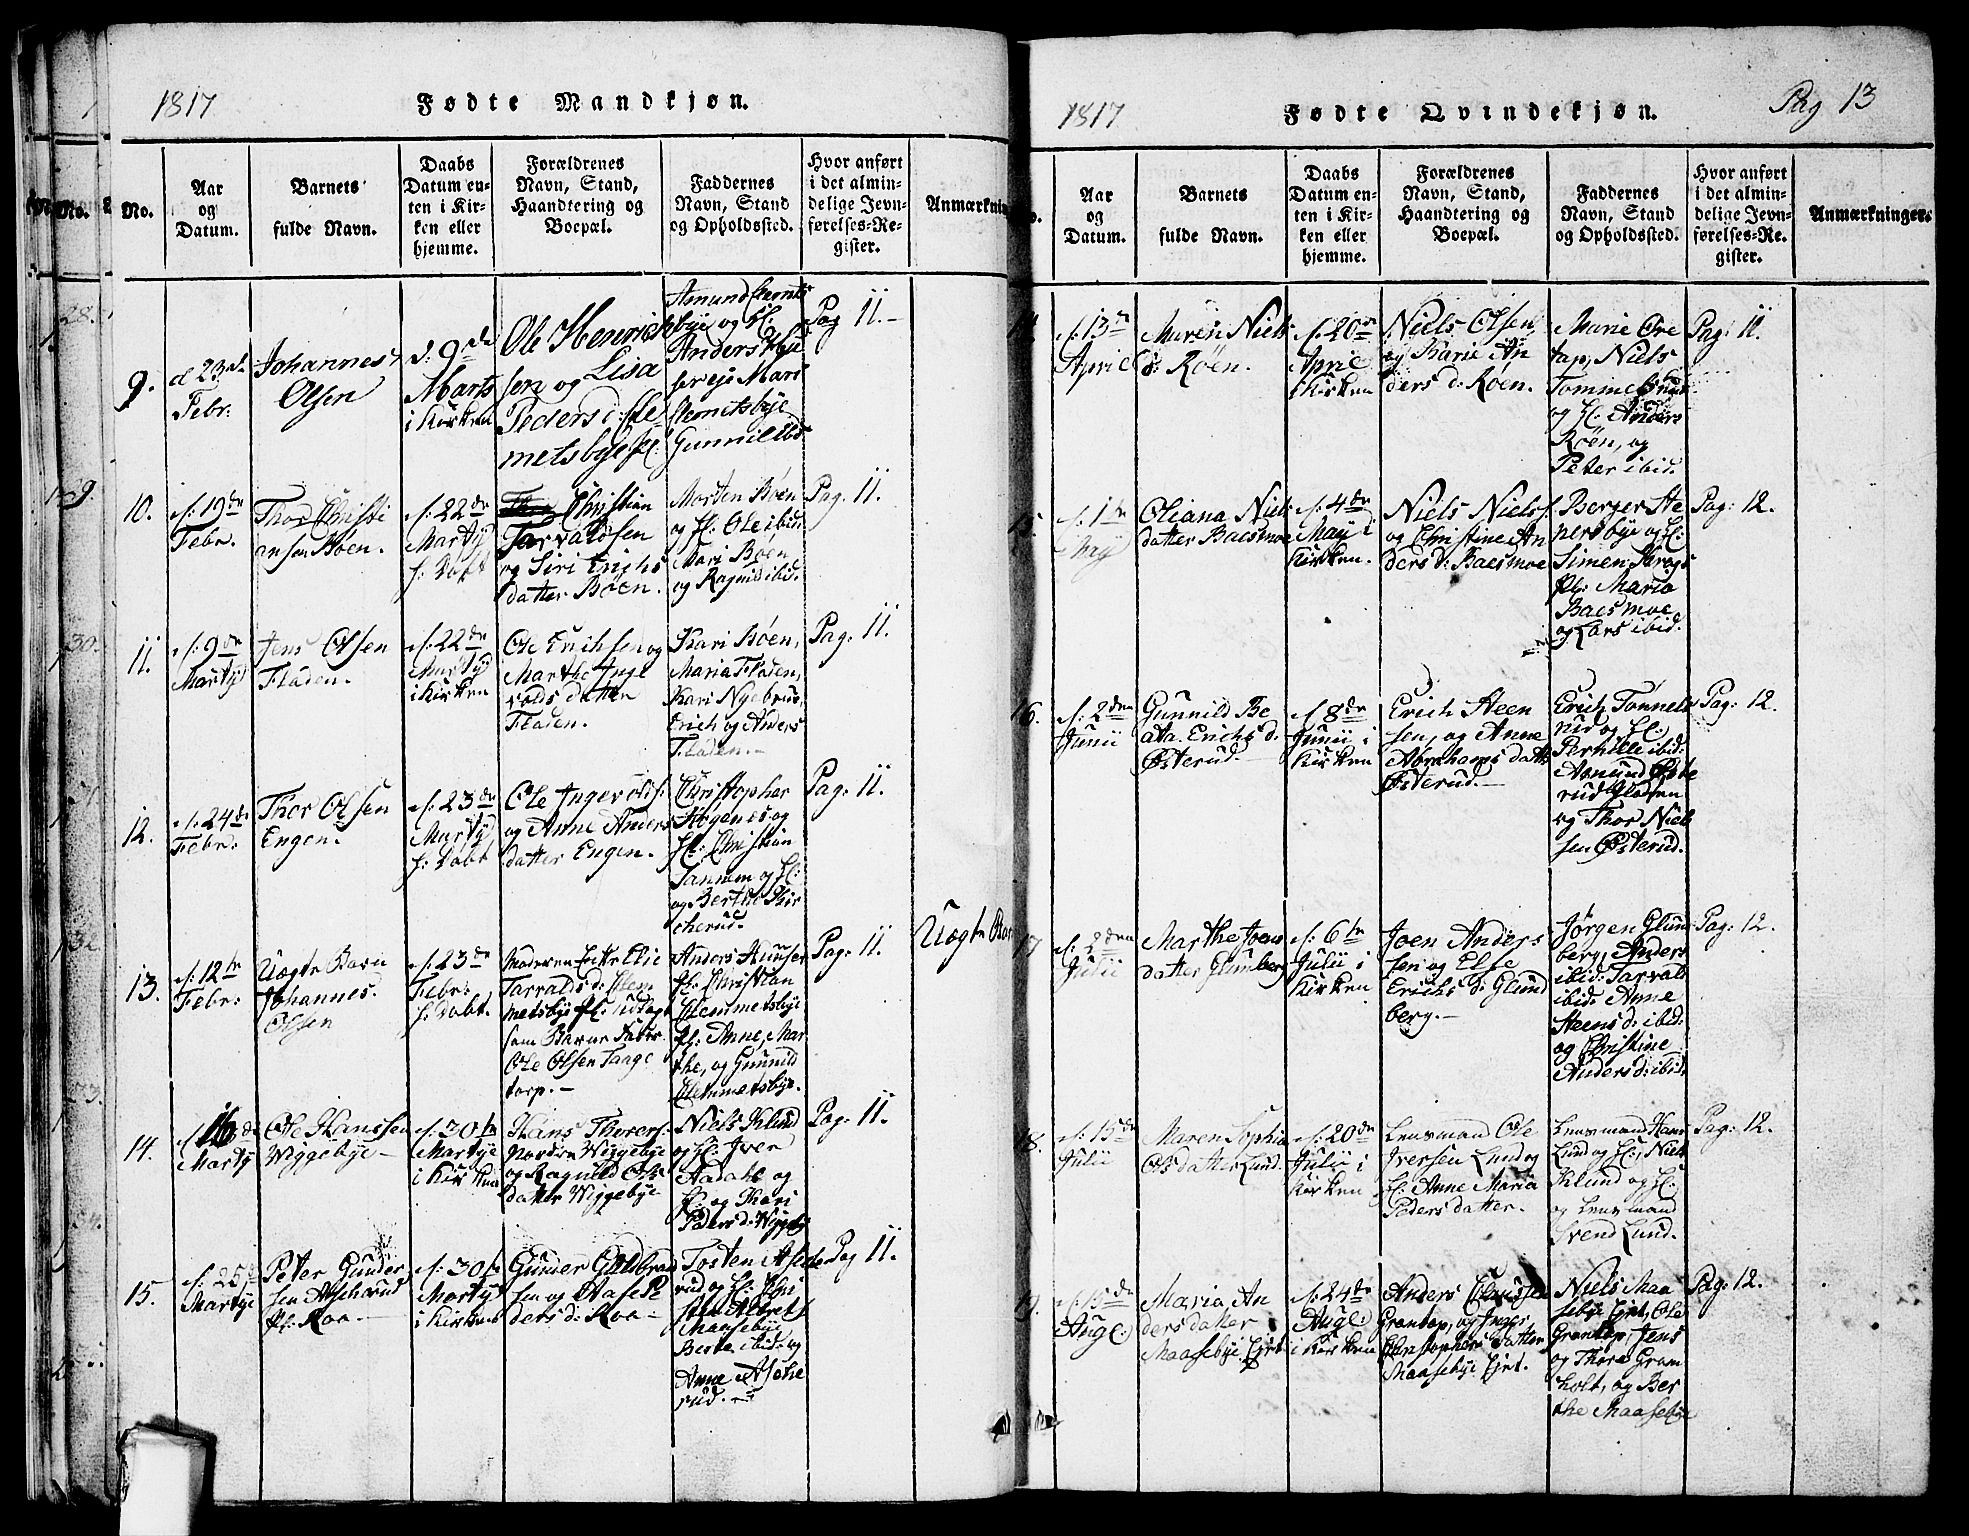 1817
Fødte Mandkjøn.
No.
Aar
og
Datum.
Barnets
fulde Navn.
Daabs
Datum en-
ten i Kir-
ken eller
hjemme.
Forældrenes
Navn, Stand,
Haandtering og
Boepæl.
Faddernes
Navn, Stand
og Opholdssted.
Hvor anført
i det almin-
delige Jevn-
førelses-Re-
gister.
Anmærkning
9.
d 23de
Febr:
Johannes
Olsen
d: 9de
Marts
i Kirken
Ole Henrich
sen og Lisa
Peders d: Cle
metsbye
Amund Clemets
bye og
Anders
Mari
Clemetsbye
Gunnild ibd
Pag 11.
10.
d: 19de
Febr.
Thor Christi
ansen Böen.
d: 22de
Martÿ
h: Döbt
Christian
Tarvaldsen
og Siri Erichs
datter Böen.
Morten Böen
og Ole ibid:
Mari Böen
og Ragnild ibid.
Pag: 11.
11.
d: 9de
Martÿ
Jens Olsen
Fladen.
d: 22de
Martÿ
i Kirken
Ole Erichsen og
Marthe Inge
volds datter
Fladen.
Kari Böen,
Maria Fladen,
Kari Nÿebrus,
Erich og Anders
Fladen.
Pag: 11.
12.
d: 24de
Febr:
Thor Olsen
Engen.
d: 23de
Martÿ
h: Dobt
Ole Ingevolds:
og Anne Anders
datter Engen.
Christopher
og
Christian
Tannem og
og Berthe Kir
cherud.
Pag: 11.
13.
d: 12te
Febr:
Uægte Barn
Johannes
Olsen
d: 23de
Febr:
h: Dobt.
Moderen Enke Elie
Tarvalds d: Clem
metsbye udlagt
som Barne Fader
Ole Olsen Taage
torp.
Anders
Christian
Clemmetsbye
Anne, Mar
the, og Gunnild
Clemmetsbye.
Pag: 11.
Uægte Bar
14.
d 16de
Martÿ
Ole Hanssen
Wiggebye
d: 30te
Martÿe
i Kirken
Hans Thorers:
Nordre Wiggebye
og Ragnild Ols
datter Wiggebye
Niels Klund
og Iver
Aadahl og
og Kari
Peders d: Wiggeby
Pag: 11.
15.
d: 25de
Martÿe
Peter Gunder
sen Ascherud
Roa.
d: 30te
Martÿe
i Kirken
Gunder Guldbrand
sen og Aase P
ders d: Roa
Tosten Asche
rud og Chri
sten Albret
Maasebye
Berte ibid: og
Anne Asche
rud.
Pag 11.
1817
Fødte Qvindekjøn.
Pag 13
Aar
og
Datum.
Barnets
fulde Navn.
Daabs
Datum en-
ten i Kir-
ken eller
hjemme.
Forældrenes
Navn, Stand,
Haandtering og
Boepæl.
Faddernes
Navn, Stand
og Opholdssted.
Hvor anført
i det almin-
delige Jevn-
førelses-Re-
gister.
Anmærkninger.
14.
d: 13de
April
Maren Niels
d: Röen.
d: 20de
April
i Kirken
Niels Olsen,
og Karie An
ders d: Röen.
Marie Gre
tap, Niels
Tommelsrud
og Anders
Röen, og
Peter ibid:
Pag: 11.
15.
d: 1de
May
Oliana Niels
datter Baesmoe
d: 4de
May i
Kirken.
Niels Niels:
og Christine An
ders d: Baesmoe
Berger Ste
persbye og
Simen
Maria
Baesmoe
og Lars ibid.
Pag: 12.
16.
d: 2den
Junii
Gunnild Be
ata Erichs d:
Österud.
d 8de
Junii i
Kirken
Erich Steen
sen, og Anne
Abrahams datter
Österud.
Erich Tonnels
rud og
Pernille ibid:
Asmund Öste
rud
og Thor Niel
sen Österud.
Pag: 12.
17
d: 2den
Julii
Marthe Joens
datter Glunberg
d: 6te
Julii i
Kirken
Joen Anders
sen og Else
Erichs d: Glund
berg.
Jörgen Glun
berg, Anders
ibid: Tarvald
ibid: Anne
Steens d: ibid:
og Christine
Anders d: ibid.
Pag: 12.
18.
d: 15de
Julii
Maren Sophia
Olsdatter Lund.
d: 20de
Julii i
Kirken
Lensmand Ole
Iversen Lund og
Anne Maria
Pedersdatter.
Lensmand Hans
Lund og Niels
Klund og
og Lensmand
Svend Lund.
Pag: 12.
19.
d: 15de
Aug:
Maria An
ders datter
Maasebye Ejrt
d: 24de
Aug:
i Kirken
Anders Claussen
Grantop, og Inger
Christophers datter
Maasebye Ejrt.
Niels Maa
sebye Ejrt, Ole
Grantop, Jens
og Thore Gram
holt, og Ber
the Maasebye
Pag: 12.